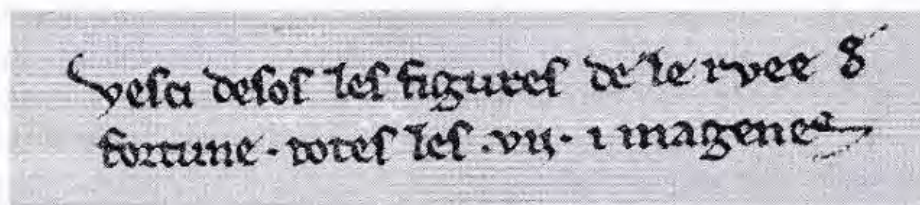 veſci deſoſ leſ figureſ de le rvee d'
fortune · toteſ leſ .vij. i magenes